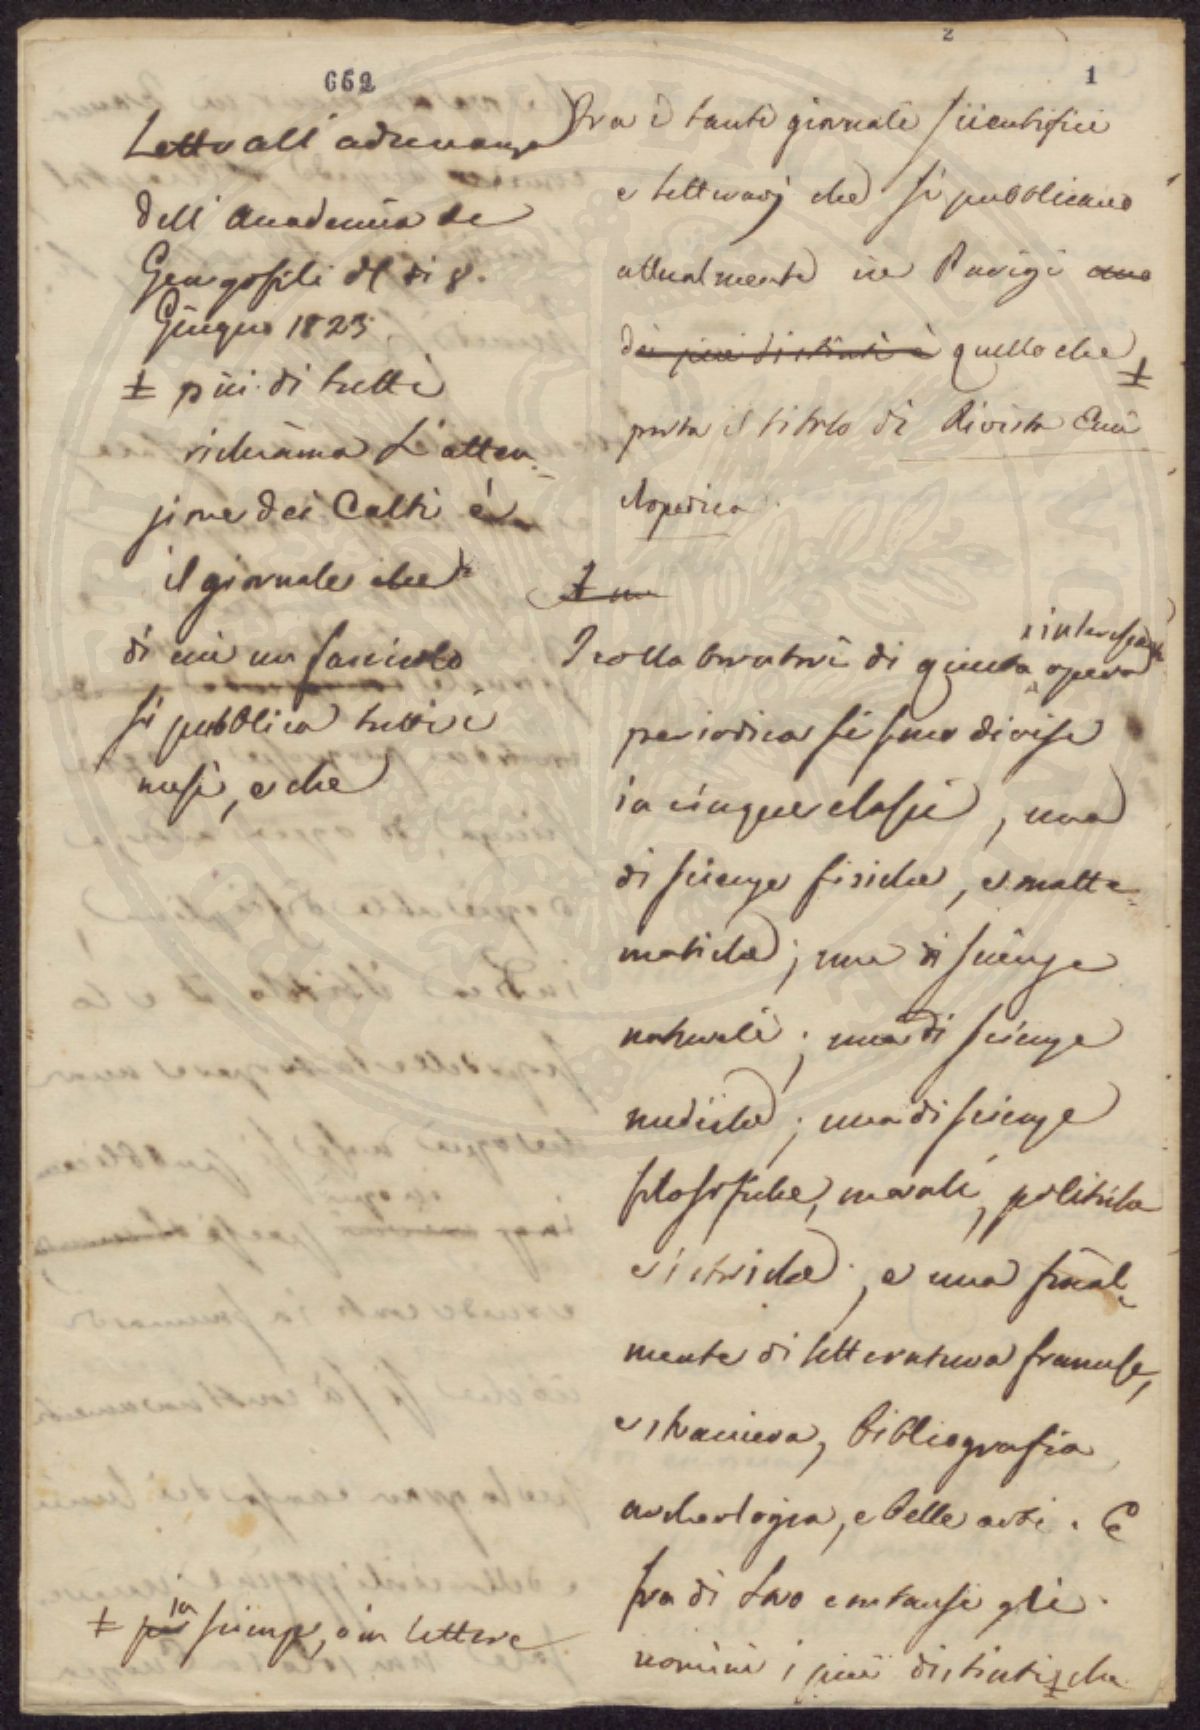 2
652
1
Letto all' adunanza
dell' Accademia de
Georgofili del dì 8.
Giugno 1823
± più di tutti
richiama l'atten-
zione dei Colti è
il giornale che
di cui un fascicolo
si pubblica tutti i
mesi, e che
± per in scienze, o in lettere
Fra i tanti giornali scientifici
e letterarj che si pubblicano
attualmente in Parigi uno
dei più distinti è quello che ±
porta il titolo di Rivista Enci
clopedica.
I collaboratori di questa interessante opera
periodica si sono divisi
in cinque classi, una
di scienze fisiche, e matte-
matiche; una di scienze
naturali; una di scienze
mediche; una di scienze
filosofiche, morali, politiche
e istoriche; e una final-
mente di letteratura francese,
e straniera, bibliografia
archeologia, e belle arti. E
fra di loro contansi gli
uomini i più distinti ± che